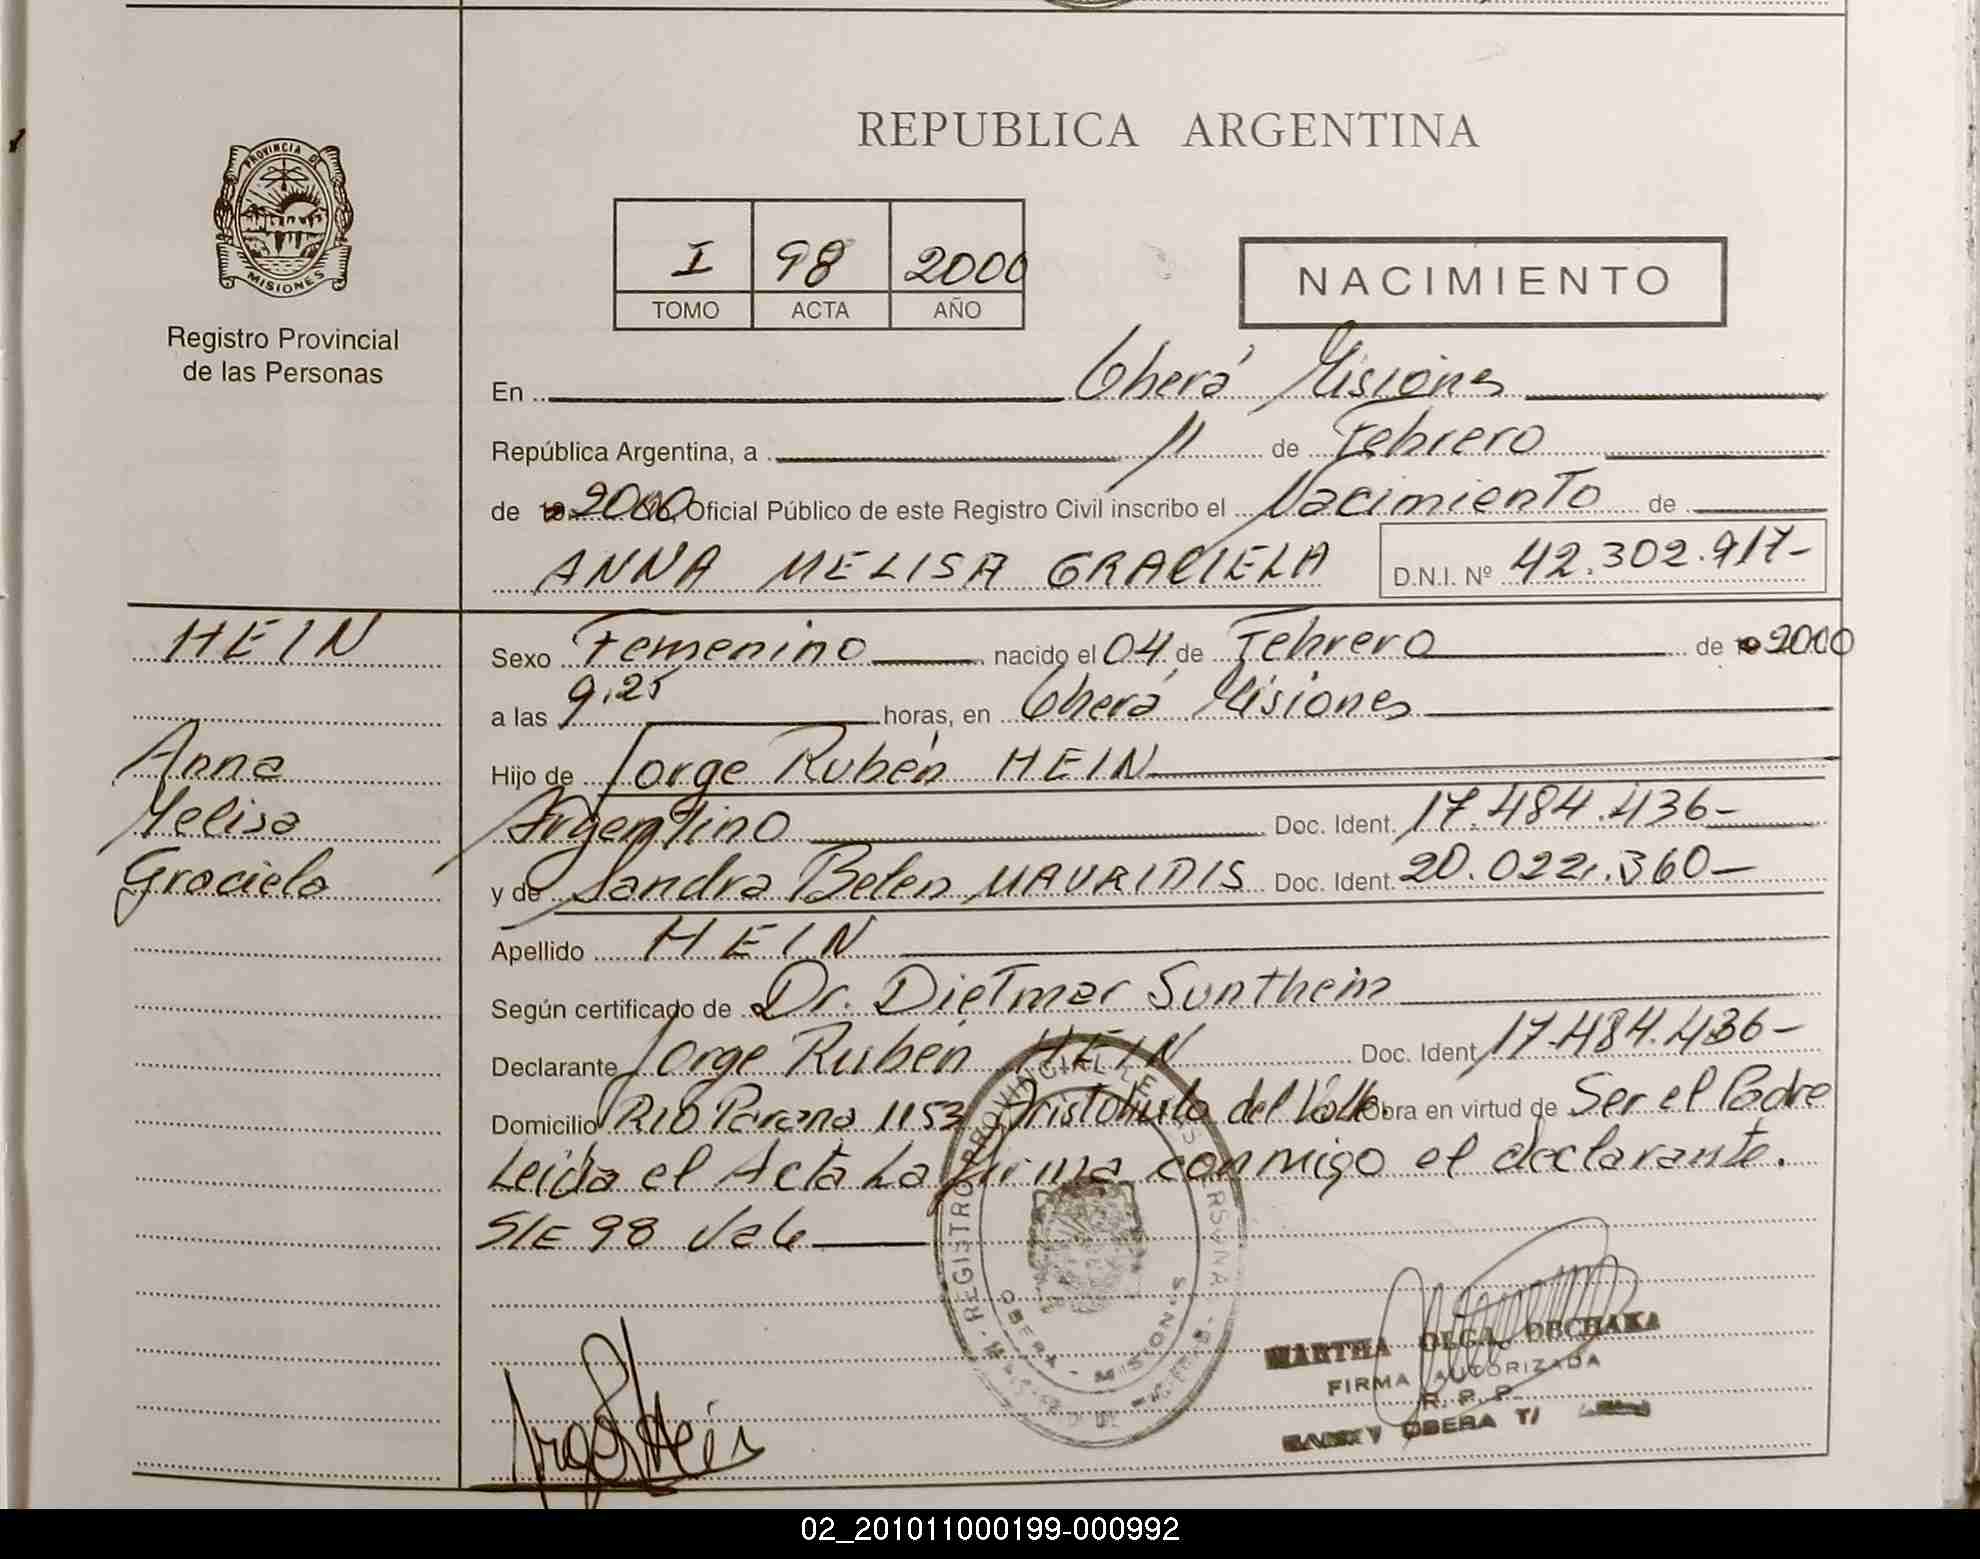 REPUBLICA ARGENTINA
PROVINCIA DE
MISIONES
Registro Provincial
de las Personas
I 98 2000
TOMO ACTA AÑO
NACIMIENTO
En Oberá Misiones
República Argentina, a 11 de Febrero
de 2000 Yo, Oficial Público de este Registro Civil inscribo el Nacimiento de
ANNA MELISA GRACIELA D.N.I. Nº 42.302.917-
HEIN
Anna
Melisa
Graciela
Sexo Femenino nacido el 04 de Febrero de 2000
a las 9.25 horas, en Oberá Misiones
Hijo de Jorge Rubén HEIN
Argentino Doc. Ident. 17.484.436-
y de Sandra Belen MAVRIDIS Doc. Ident. 20.022.360-
Apellido HEIN
Según certificado de Dr. Dietmar Sunthein
Declarante Jorge Rubén HEIN Doc. Ident. 17.484.436-
Domicilio RIO Parana 1153 Aristobulo del Valle. Obra en virtud de Ser el Padre
Leida el Acta La firma conmigo el declarante.
S/E 98 Vale
REGISTRO PROVINCIAL DE LAS PERSONAS
OBERA - MISIONES
MARTHA OLGA OBCHAKA
FIRMA AUTORIZADA
R. P. P.
OBERA T/
02_201011000199-000992